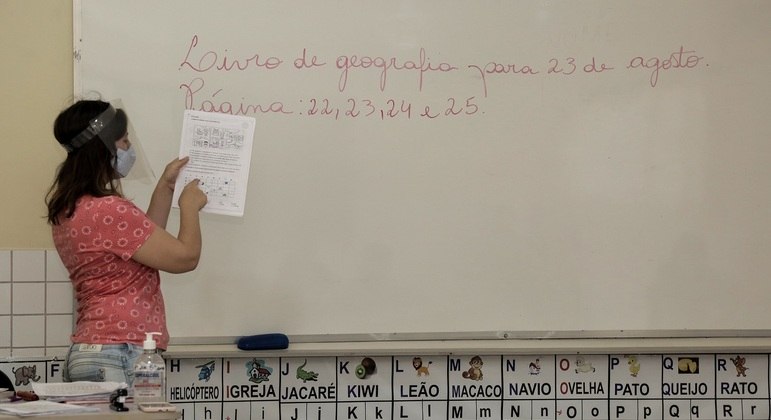 Livro de geografia para 23 de agosto.
Página: 22, 23, 24 e 25.
F H I J K L M N O P Q R
HELICÓPTERO IGREJA JACARÉ KIWI LEÃO MACACO NAVIO OVELHA PATO QUEIJO RATO
h i J j K k L l M m N n O o P p Q q R r